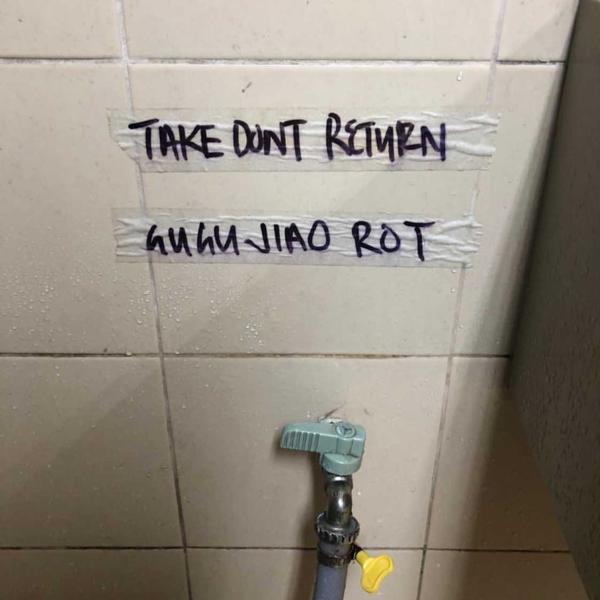 TAKE DONT RETURN
GUGU JIAO ROT